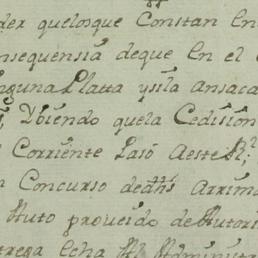 der quelosque Constan En
nsequensia deque En el
nguna Platta ysila ansaca
Ybiendo quela Cedision
e Corriente Pasó Aeste R.²
n Concurso de dhs Arrima
Auto proveido de Autori
trega Echa Al Administr